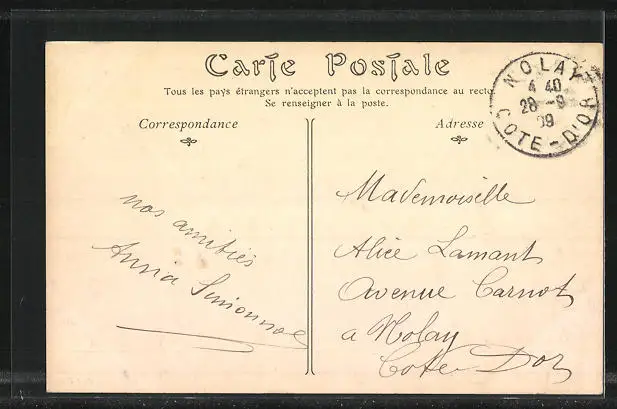 Carte Postale
Tous les pays étrangers n'acceptent pas la correspondance au recto
Se renseigner à la poste.
NOLAY
4 40
28 -9
09
COTE-D'OR
Correspondance
Adresse
nos amitiés
Mademoiselle
Alice Lamant
Avenue Carnot
a Nolay
Cote Dor